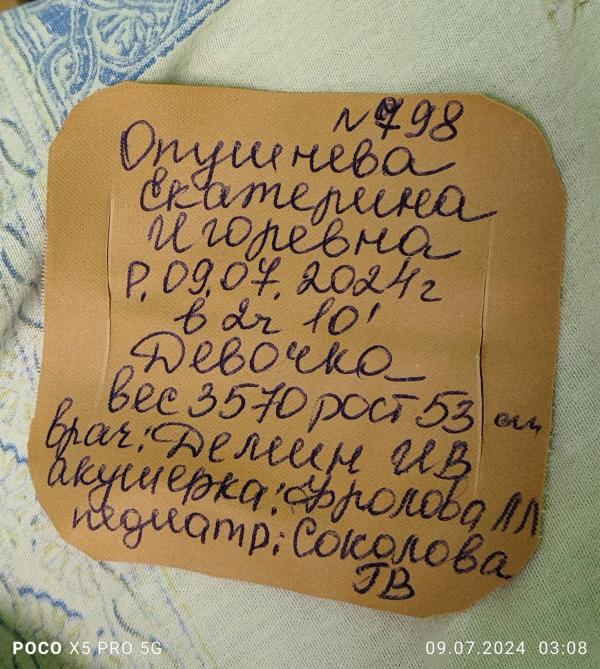 N 798
Опушнева
Екатерина
Игоревна
Р. 09.07.2024г
в 2ч 10'
Девочка
вес 3570 рост 53 см
врач: Демин ИВ
акушерка: Фролова ЛЛ
педиатр: Соколова
ГВ
POCO X5 PRO 5G
09.07.2024 03:08